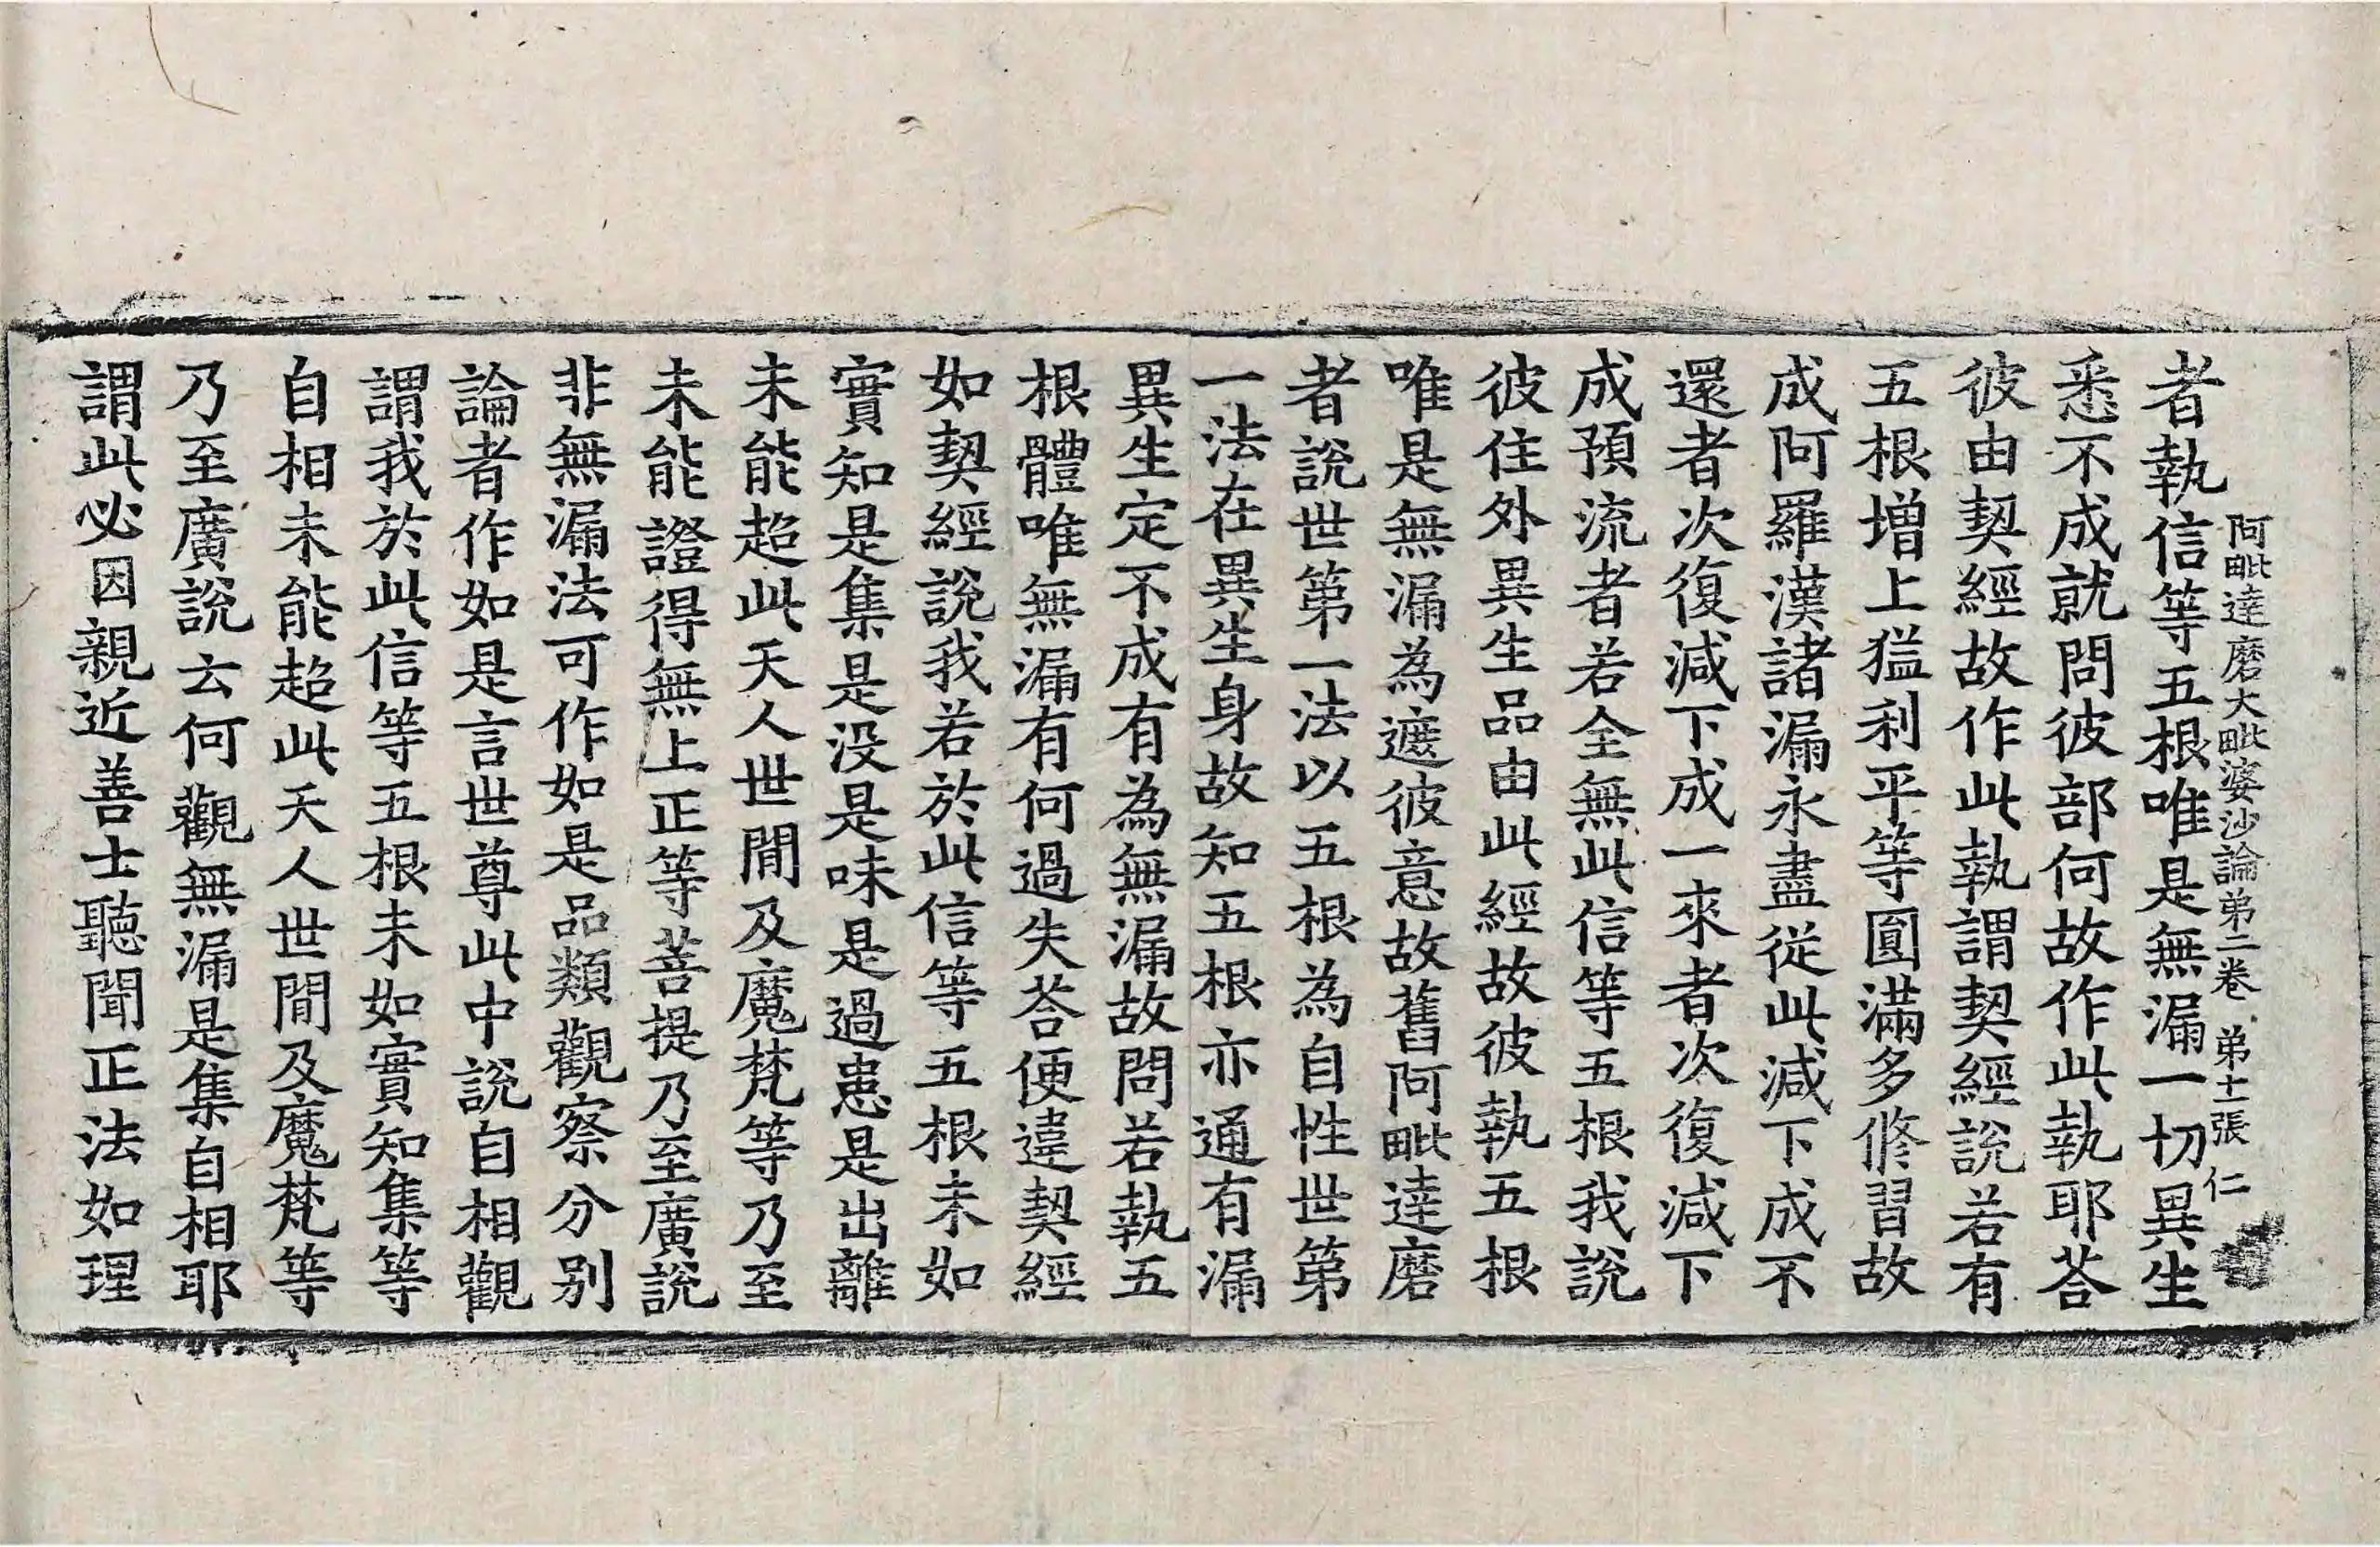 阿毗達磨大毗婆沙論弟二卷　弟十一張　仁
者執信等五根唯是無漏一切異生
悉不成就問彼部何故作此執耶荅
彼由契經故作此執謂契經說若有
五根增上猛利平等圓滿多修習故
成阿羅漢諸漏永盡從此減下成不
還者次復減下成一來者次復減下
成預流者若全無此信等五根我說
彼住外異生品由此經故彼執五根
唯是無漏為遮彼意故舊阿毗達磨
者說世第一法以五根為自性世第
一法在異生身故知五根亦通有漏
異生定不成有為無漏故問若執五
根體唯無漏有何過失荅便違契經
如契經說我若於此信等五根未如
實知是集是没是味是過患是出離
未能超此天人世間及魔梵等乃至
未能證得無上正等菩提乃至廣說
非無漏法可作如是品類觀察分別
論者作如是言世尊此中說自相觀
謂我於此信等五根未如實知集等
自相未能超此天人世間及魔梵等
乃至廣說云何觀無漏是集自相耶
謂此必因親近善士聽聞正法如理